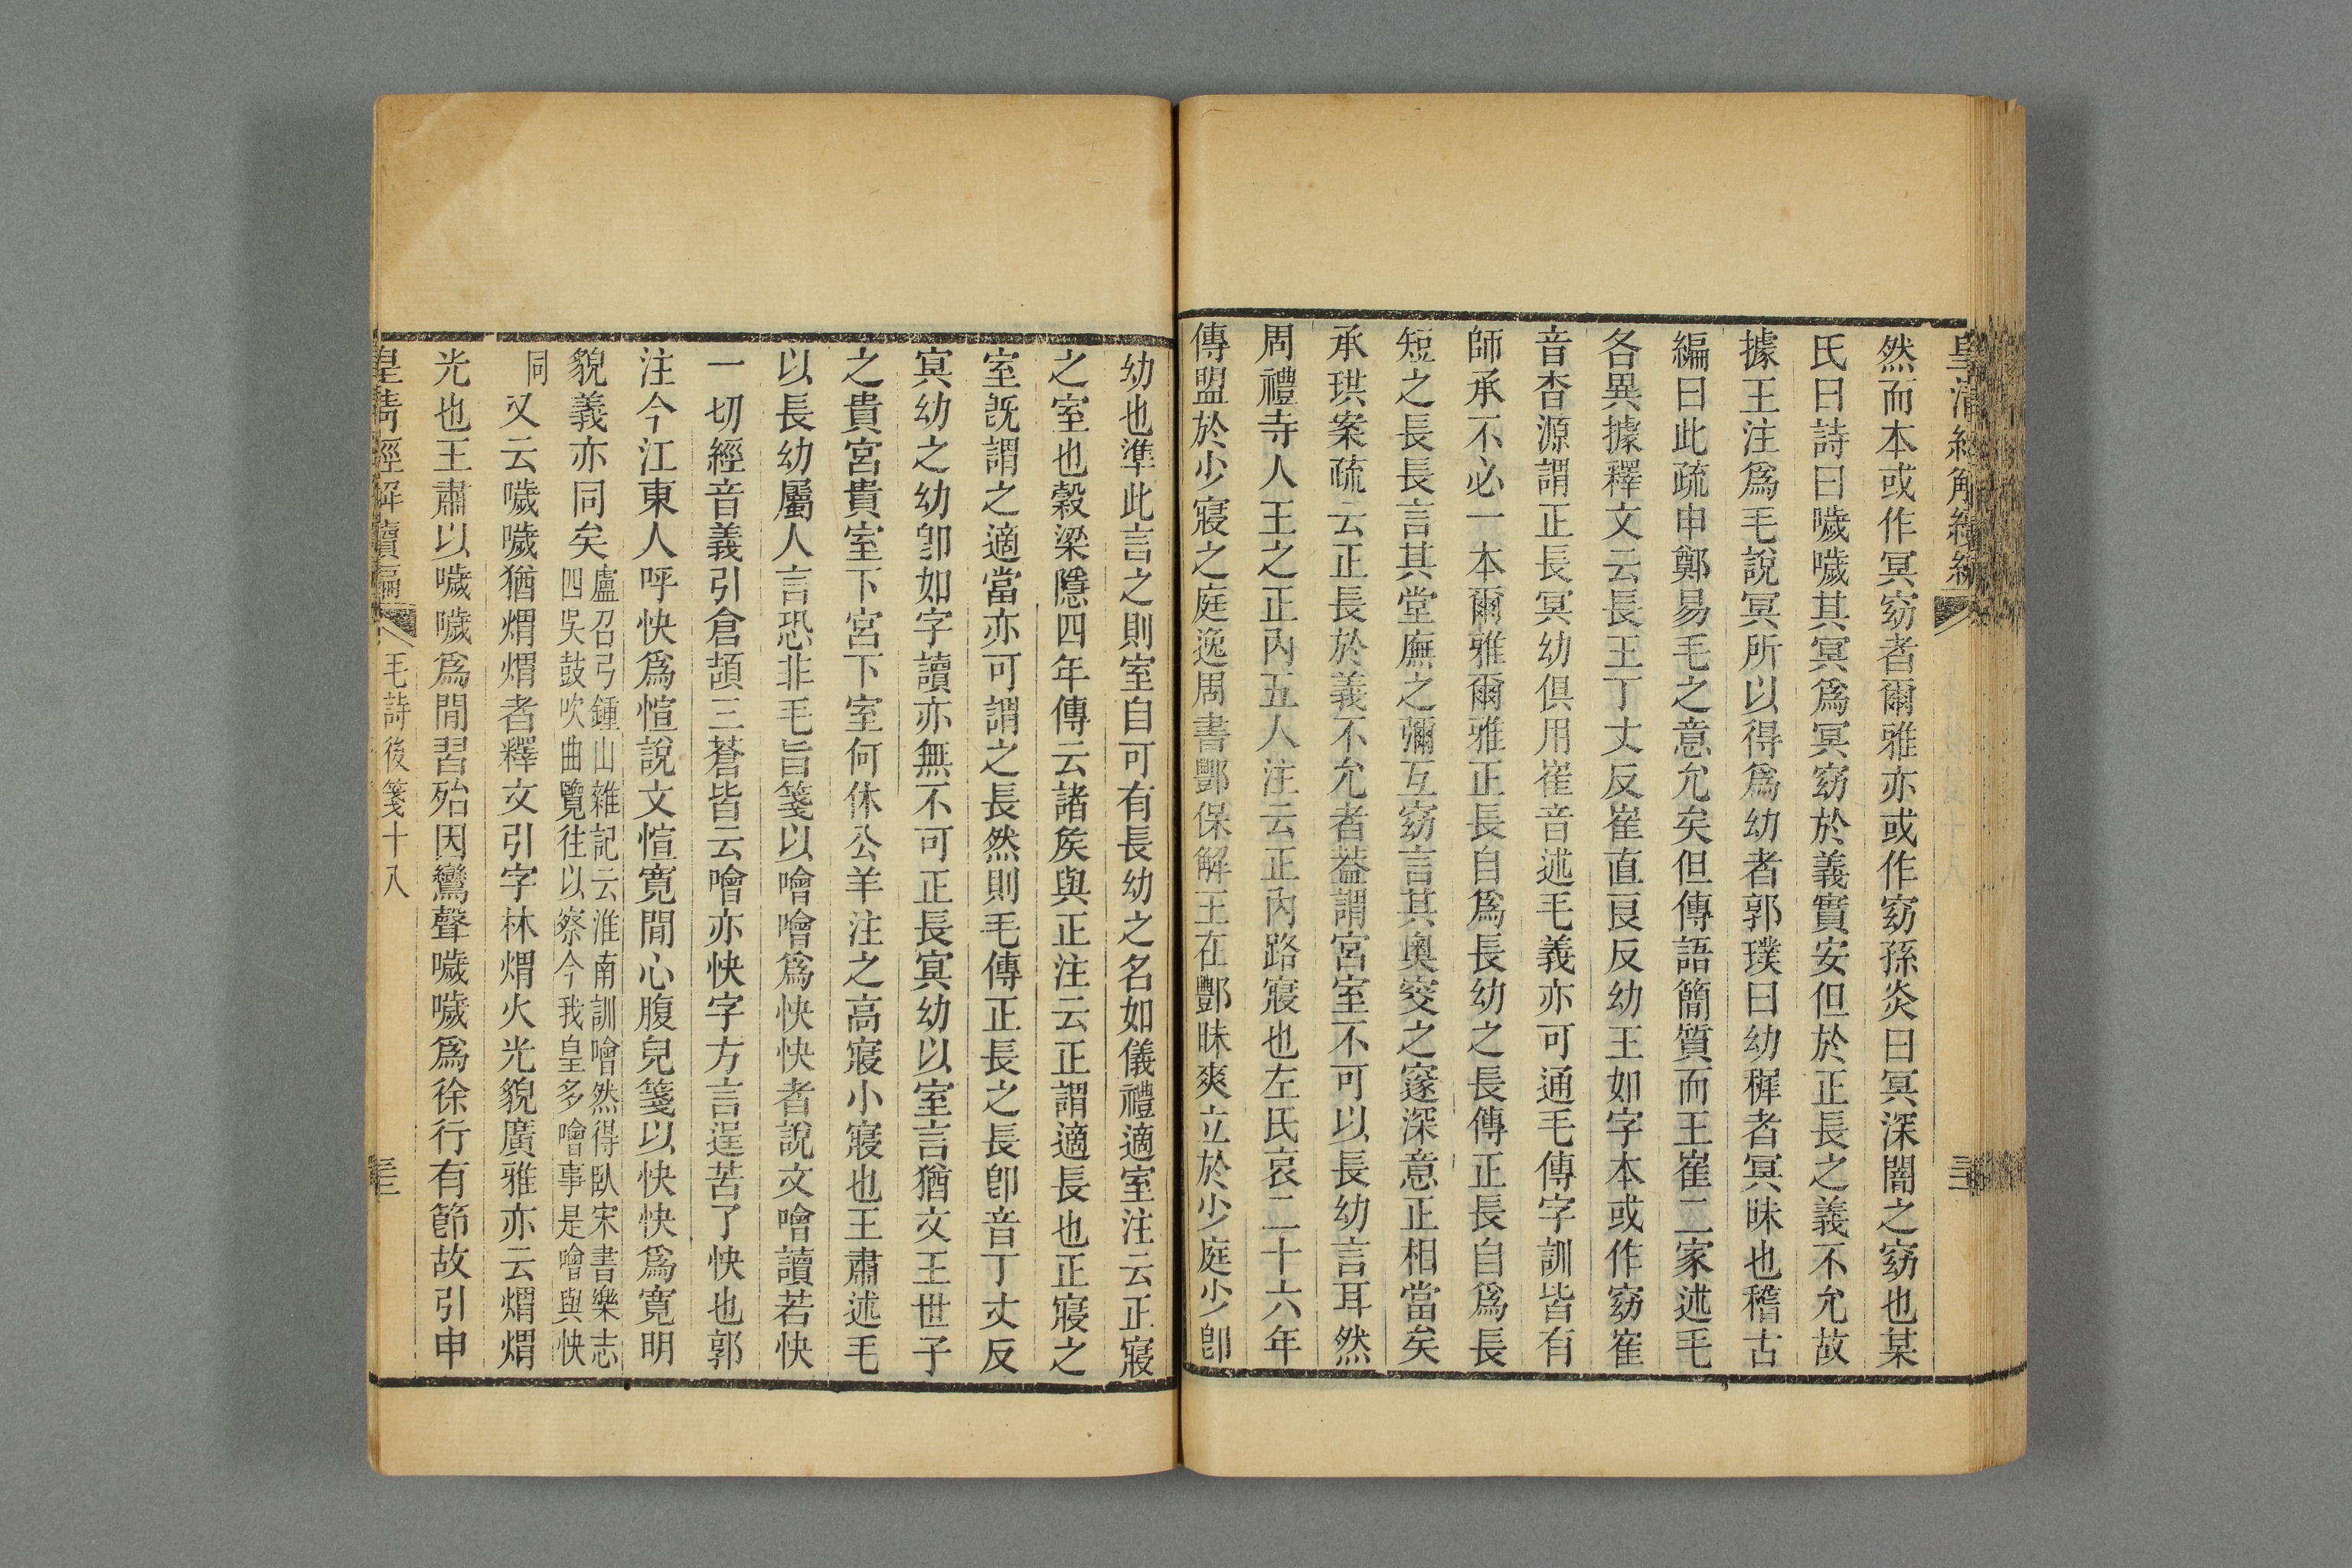 皇清經解續編
然而本或作冥窈者爾雅亦或作窈孫炎曰冥深闇之窈也某
氏曰詩曰噦噦其冥爲冥窈於義實安但於正長之義不允故
據王注爲毛說冥所以得爲幼者郭璞曰幼穉者冥昧也稽古
編曰此疏申鄭易毛之意允矣但傳語簡質而王崔二家述毛
各異據釋文云長王丁丈反崔直良反幼王如字本或作窈崔
音杳源謂正長冥幼俱用崔音述毛義亦可通毛傳字訓皆有
師承不必一本爾雅爾雅正長自爲長幼之長傳正長自爲長
短之長長言其堂廡之彌互窈言其奧窔之邃深意正相當矣
承珙案疏云正長於義不允者葢謂宮室不可以長幼言耳然
周禮寺人王之正內五人注云正內路寢也左氏哀二十六年
傳盟於少寢之庭逸周書酆保解王在酆昧爽立於少庭少卽
幼也準此言之則室自可有長幼之名如儀禮適室注云正寢
之室也穀梁隱四年傳云諸矦與正注云正謂適長也正寢之
室旣謂之適當亦可謂之長然則毛傳正長之長卽音丁丈反
㝠幼之幼卽如字讀亦無不可正長㝠幼以室言猶文王世子
之貴宮貴室下宮下室何休公羊注之高寢小寢也王肅述毛
以長幼屬人言恐非毛旨箋以噲噲爲快快者說文噲讀若快
一切經音義引倉頡三蒼皆云噲亦快字方言逞苦了快也郭
注今江東人呼快爲愃說文愃寬閒心腹皃箋以快快爲寬明
貌義亦同矣盧召弓鍾山雜記云淮南訓噲然得臥宋書樂志
四吳鼓吹曲覽往以察今我皇多噲事是噲與快
同又云噦噦猶煟煟者釋文引字林煟火光貌廣雅亦云煟煟
光也王肅以噦噦爲閒習殆因鸞聲噦噦爲徐行有節故引申
皇清經解續編 毛詩後箋十八